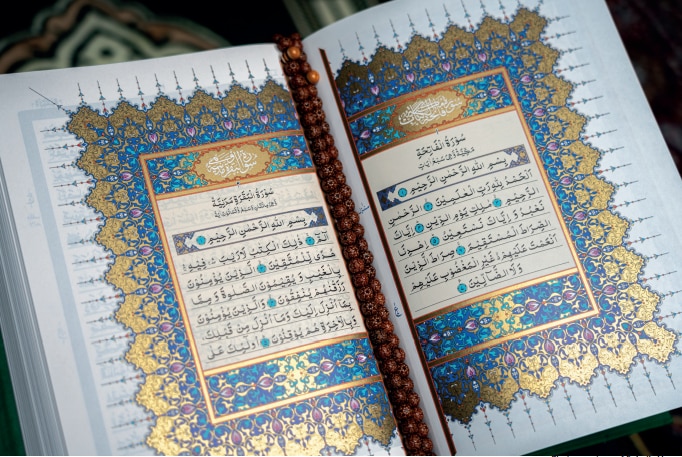 سُورَةُ الْفَاتِحَةِ
مَكِّيَّةٌ وَهِيَ سَبْعُ آيَاتٍ
بِسْمِ اللّٰهِ الرَّحْمٰنِ الرَّحيمِ ١
اَلْحَمْدُ لِلّٰهِ رَبِّ الْعَالَمينَ ٢ اَلرَّحْمٰنِ
الرَّحيمِ ٣ مَالِكِ يَوْمِ الدّينِ ٤ اِيَّاكَ
نَعْبُدُ وَ اِيَّاكَ نَسْتَعينُ ٥ اِهْدِنَا
الصِّرَاطَ الْمُسْتَقيمَ ٦ صِرَاطَ الَّذينَ
اَنْعَمْتَ عَلَيْهِمْ غَيْرِ الْمَغْضُوبِ عَلَيْهِمْ
وَلَا الضَّالّينَ ٧
سُورَةُ الْبَقَرَةِ مَدَنِيَّةٌ
بِسْمِ اللّٰهِ الرَّحْمٰنِ الرَّحيمِ
الٓمٓ ١ ذٰلِكَ الْكِتٰبُ لَارَيْبَ فيهِ
هُدًى لِلْمُتَّقينَ ٢ اَلَّذينَ يُؤْمِنُونَ
بِالْغَيْبِ وَ يُقيمُونَ الصَّلٰوةَ وَ مِمَّا
رَزَقْنٰهُمْ يُنْفِقُونَ ٣ وَالَّذينَ يُؤْمِنُونَ
بِمَا اُنْزِلَ اِلَيْكَ وَمَا اُنْزِلَ مِنْ قَبْلِكَ
وَبِالْاٰخِرَةِ هُمْ يُوقِنُونَ ٤ اُولٰئِكَ عَلٰى